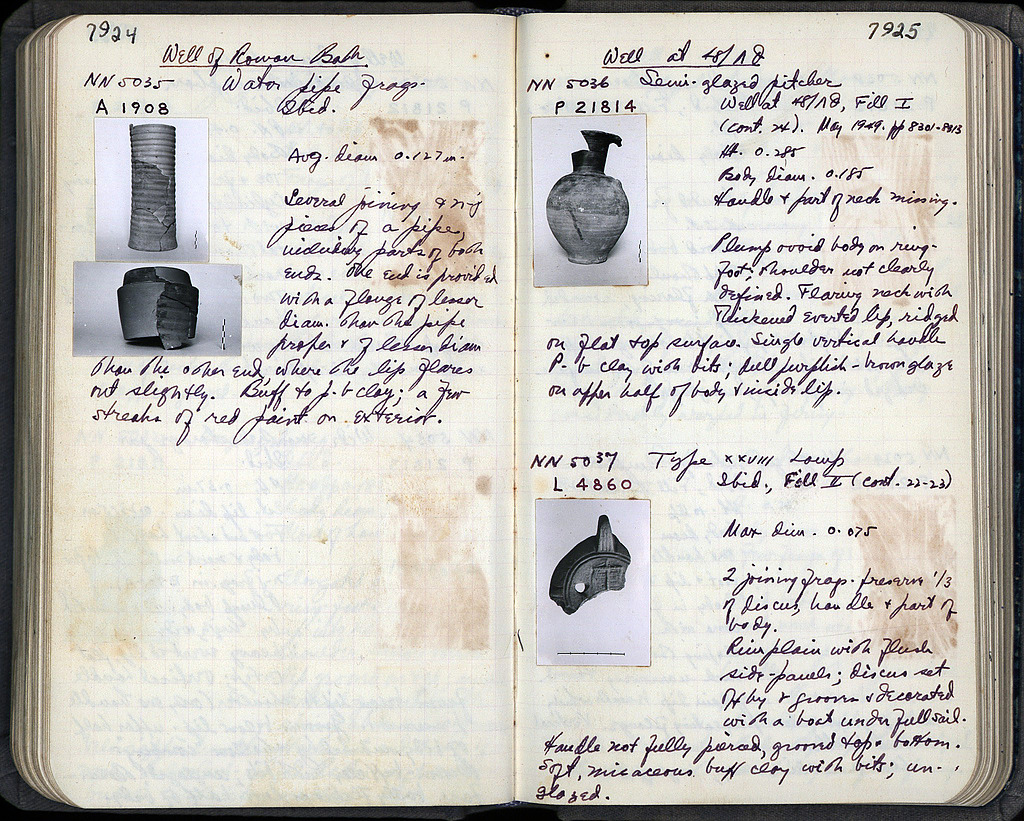 7924
Well of Roman Bath
NN 5035 Water pipe frags.
A 1908 Ibid.
Avg. diam 0.127 m.
Several joining & n-j
pieces of a pipe,
including parts of both
ends. One end is provided
with a flange of lesser
diam. than the pipe
proper & of lesser diam
than the other end, where the lip flares
out slightly. Buff to p-b clay; a few
streaks of red paint on exterior.
7925
Well at 48/ΛΣ
NN 5036 Semi-glazed pitcher
P 21814 Well at 48/ΛΣ, Fill I
(cont. 24). May 1949. pp 8301-8913
Ht. 0.285
Body diam. 0.185
Handle & part of neck missing.
Plump ovoid body on ring-
foot; shoulder not clearly
defined. Flaring neck with
thickened everted lip, ridged
on flat top surface. Single vertical handle
P-b clay with bits; dull purplish-brown glaze
on upper half of body & inside lip.
NN 5037 Type XXVIII Lamp
L 4860 Ibid., Fill II (cont. 22-23)
Max dim. 0.075
2 joining frags. preserve 1/3
of discus, handle & part of
body.
Rim plain with flush
side-panels; discus set
off by & grooves & decorated
with a boat under full sail.
Handle not fully pierced, grooved top & bottom.
Soft, micaceous buff clay with bits; un-
glazed.